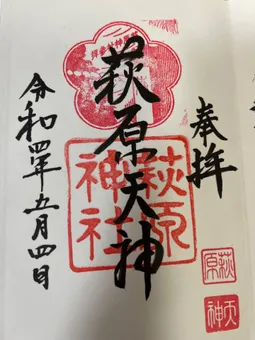 奉拝
萩原天神
萩原
神社
令和四年五月四日
萩原
天神